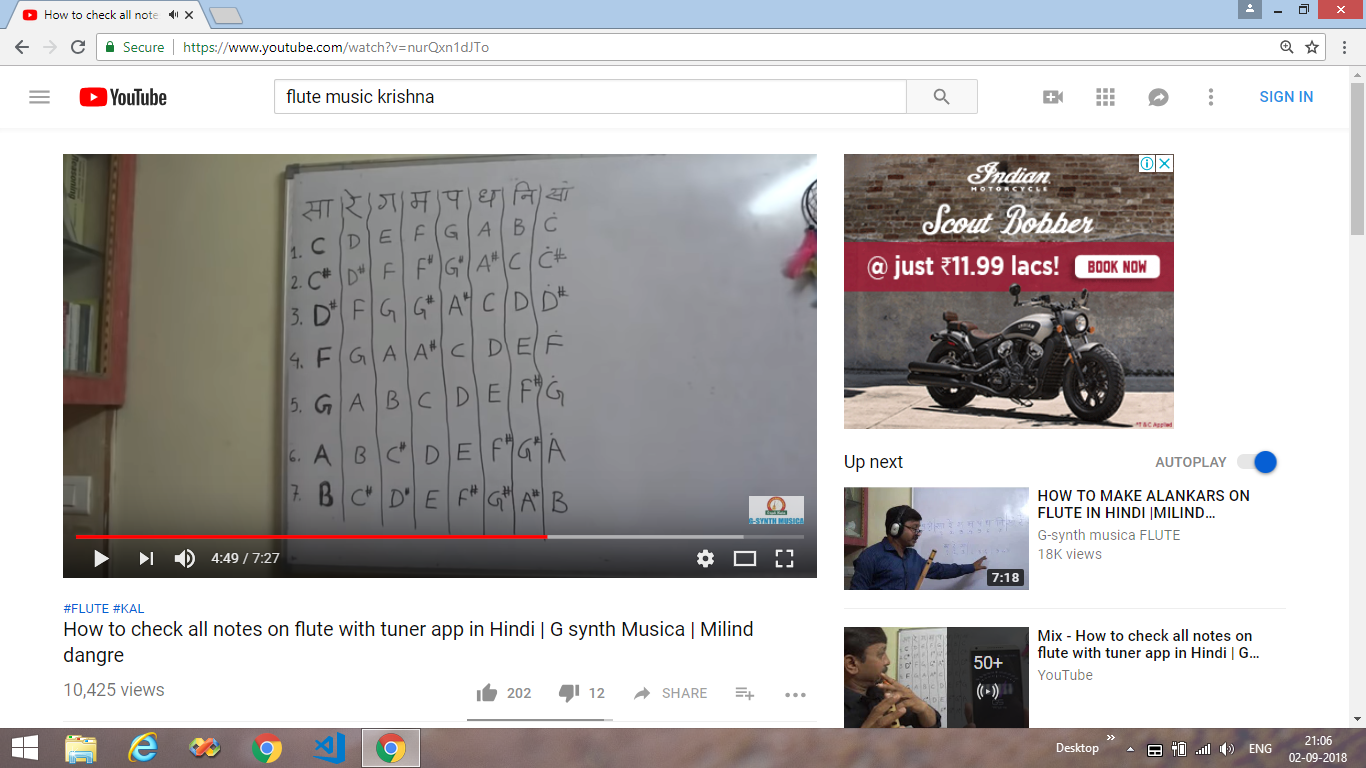 How to check all note
Secure https://www.youtube.com/watch?v=nurQxn1dJTo
YouTube
flute music krishna
SIGN IN
सा रे ग म प ध नि सां
1. C D E F G A B Ċ
2. C# D# F F# G# A# C Ċ#
3. D# F G G# A# C D Ḋ#
4. F G A A# C D E Ḟ
5. G A B C D E F# Ġ
6. A B C# D E F# G# Ȧ
7. B C# D# E F# G# A# B
G-SYNTH MUSICA
4:49 / 7:27
#FLUTE #KAL
How to check all notes on flute with tuner app in Hindi | G synth Musica | Milind
dangre
10,425 views
202 12 SHARE
Indian
MOTORCYCLE
Scout Bobber
@ just ₹11.99 lacs! BOOK NOW
INDIAN
*T & C Applied
Up next AUTOPLAY
HOW TO MAKE ALANKARS ON
FLUTE IN HINDI |MILIND...
G-synth musica FLUTE
18K views
7:18
Mix - How to check all notes on
flute with tuner app in Hindi | G...
YouTube
50+
Desktop ENG 21:06
02-09-2018